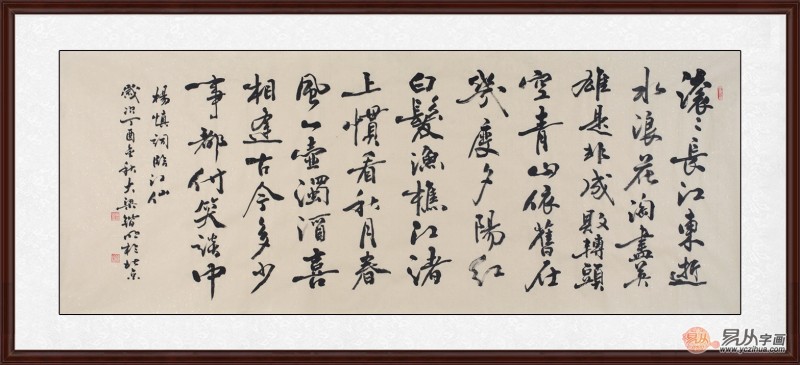 滚〻長江東逝
水浪花淘盡英
雄是非成敗轉頭
空青山依舊在
幾度夕陽紅
白髮漁樵江渚
上慣看秋月春
風一壺濁酒喜
相逢古今多少
事都付笑談中
楊慎詞臨江仙
歲次丁酉年秋大梁
於北京
易从字画
www.yczihua.com